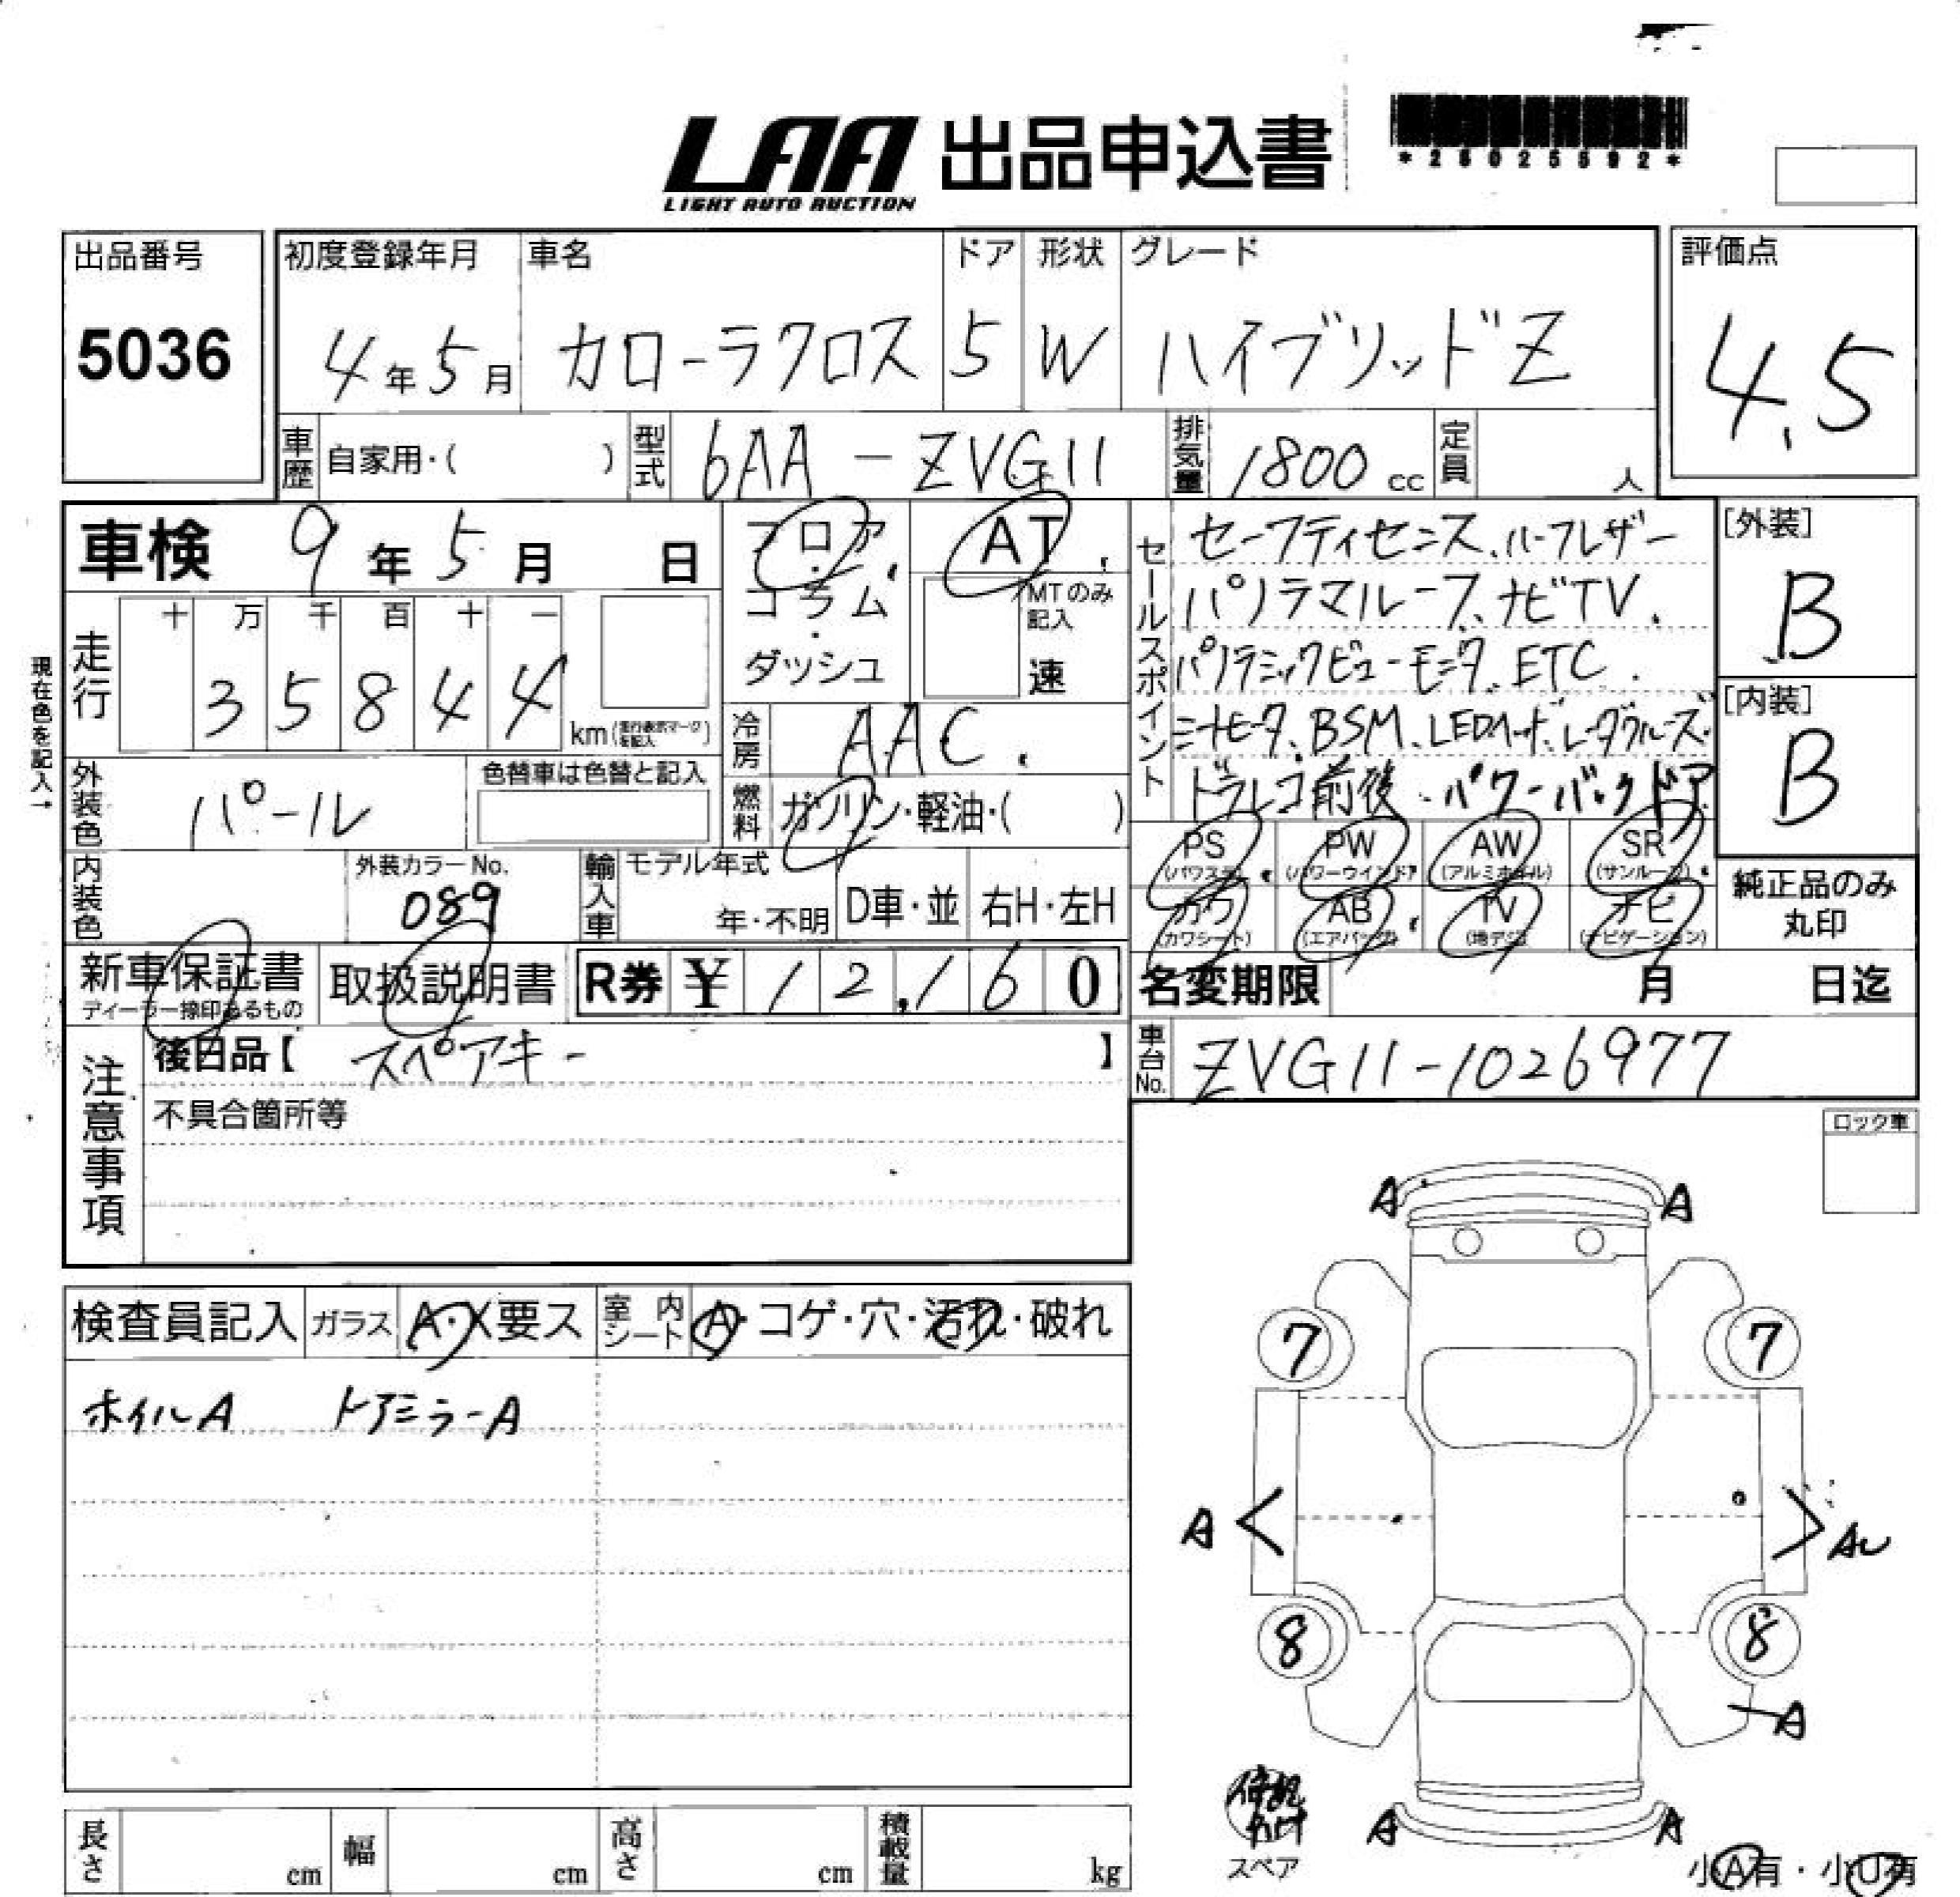 LAA 出品申込書
LIGHT AUTO AUCTION
*28025592*
出品番号
5036
初度登録年月 車名 ドア 形状 グレード
4年5月 カローラクロス 5 W ハイブリッドZ
評価点
4.5
車歴 自家用・( ) 型式 6AA-ZVG11 排気量 1800cc 定員 人
車検 9年5月 日
フロア・コラム・ダッシュ
AT
MTのみ記入
速
セールスポイント
セーフティセンス、ハーフレザー
パノラマルーフ、ナビTV.
パノラミックビューモニタ、ETC.
ニーナモニタ、BSM、LEDヘッド、レーダクルーズ
ドラレコ前後・パワーバックドア
[外装]
B
[内装]
B
現在色を記入→
走行
十 万 千 百 十 一
35844
km(走行表示マークを記入)
冷房 AAC.
外装色 パール
色替車は色替と記入
燃料 ガソリン・軽油・( )
内装色
外装カラーNo.
089
輸入車 モデル年式
年・不明 D車・並 右H・左H
PS PW AW SR
(パワステ) (パワーウインドウ) (アルミホイル) (サンルーフ)
カワ AB TV ナビ
(カワシート) (エアバッグ) (地デジ) (ナビゲーション)
純正品のみ
丸印
新車保証書
ディーラー捺印あるもの
取扱説明書
R券 ¥12,160
名変期限 月 日迄
注意事項
後日品【 スペアキー 】
車台No. ZVG11-1026977
不具合箇所等
ロック車
検査員記入 ガラス A・X要ス 室内シート A・コゲ・穴・汚れ・破れ
ホイルA ドアミラーA
A A
7 7
A AU
8 8
A
A A
スペア
小A有・小U有
長さ cm 幅 cm 高さ cm 積載量 kg